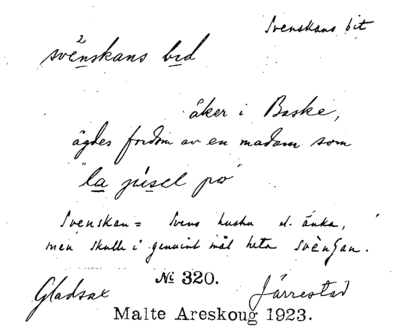 Svenskans bit
svènskans bɪd
åker i Baske,
ägdes fordom av en madam som
"la jusel po"
Svenskan = Svens hustru el. änka,
men skulle i genuint mål heta svènʃan.
№ 320.
Gladsax Järrestad
Malte Areskoug 1923.